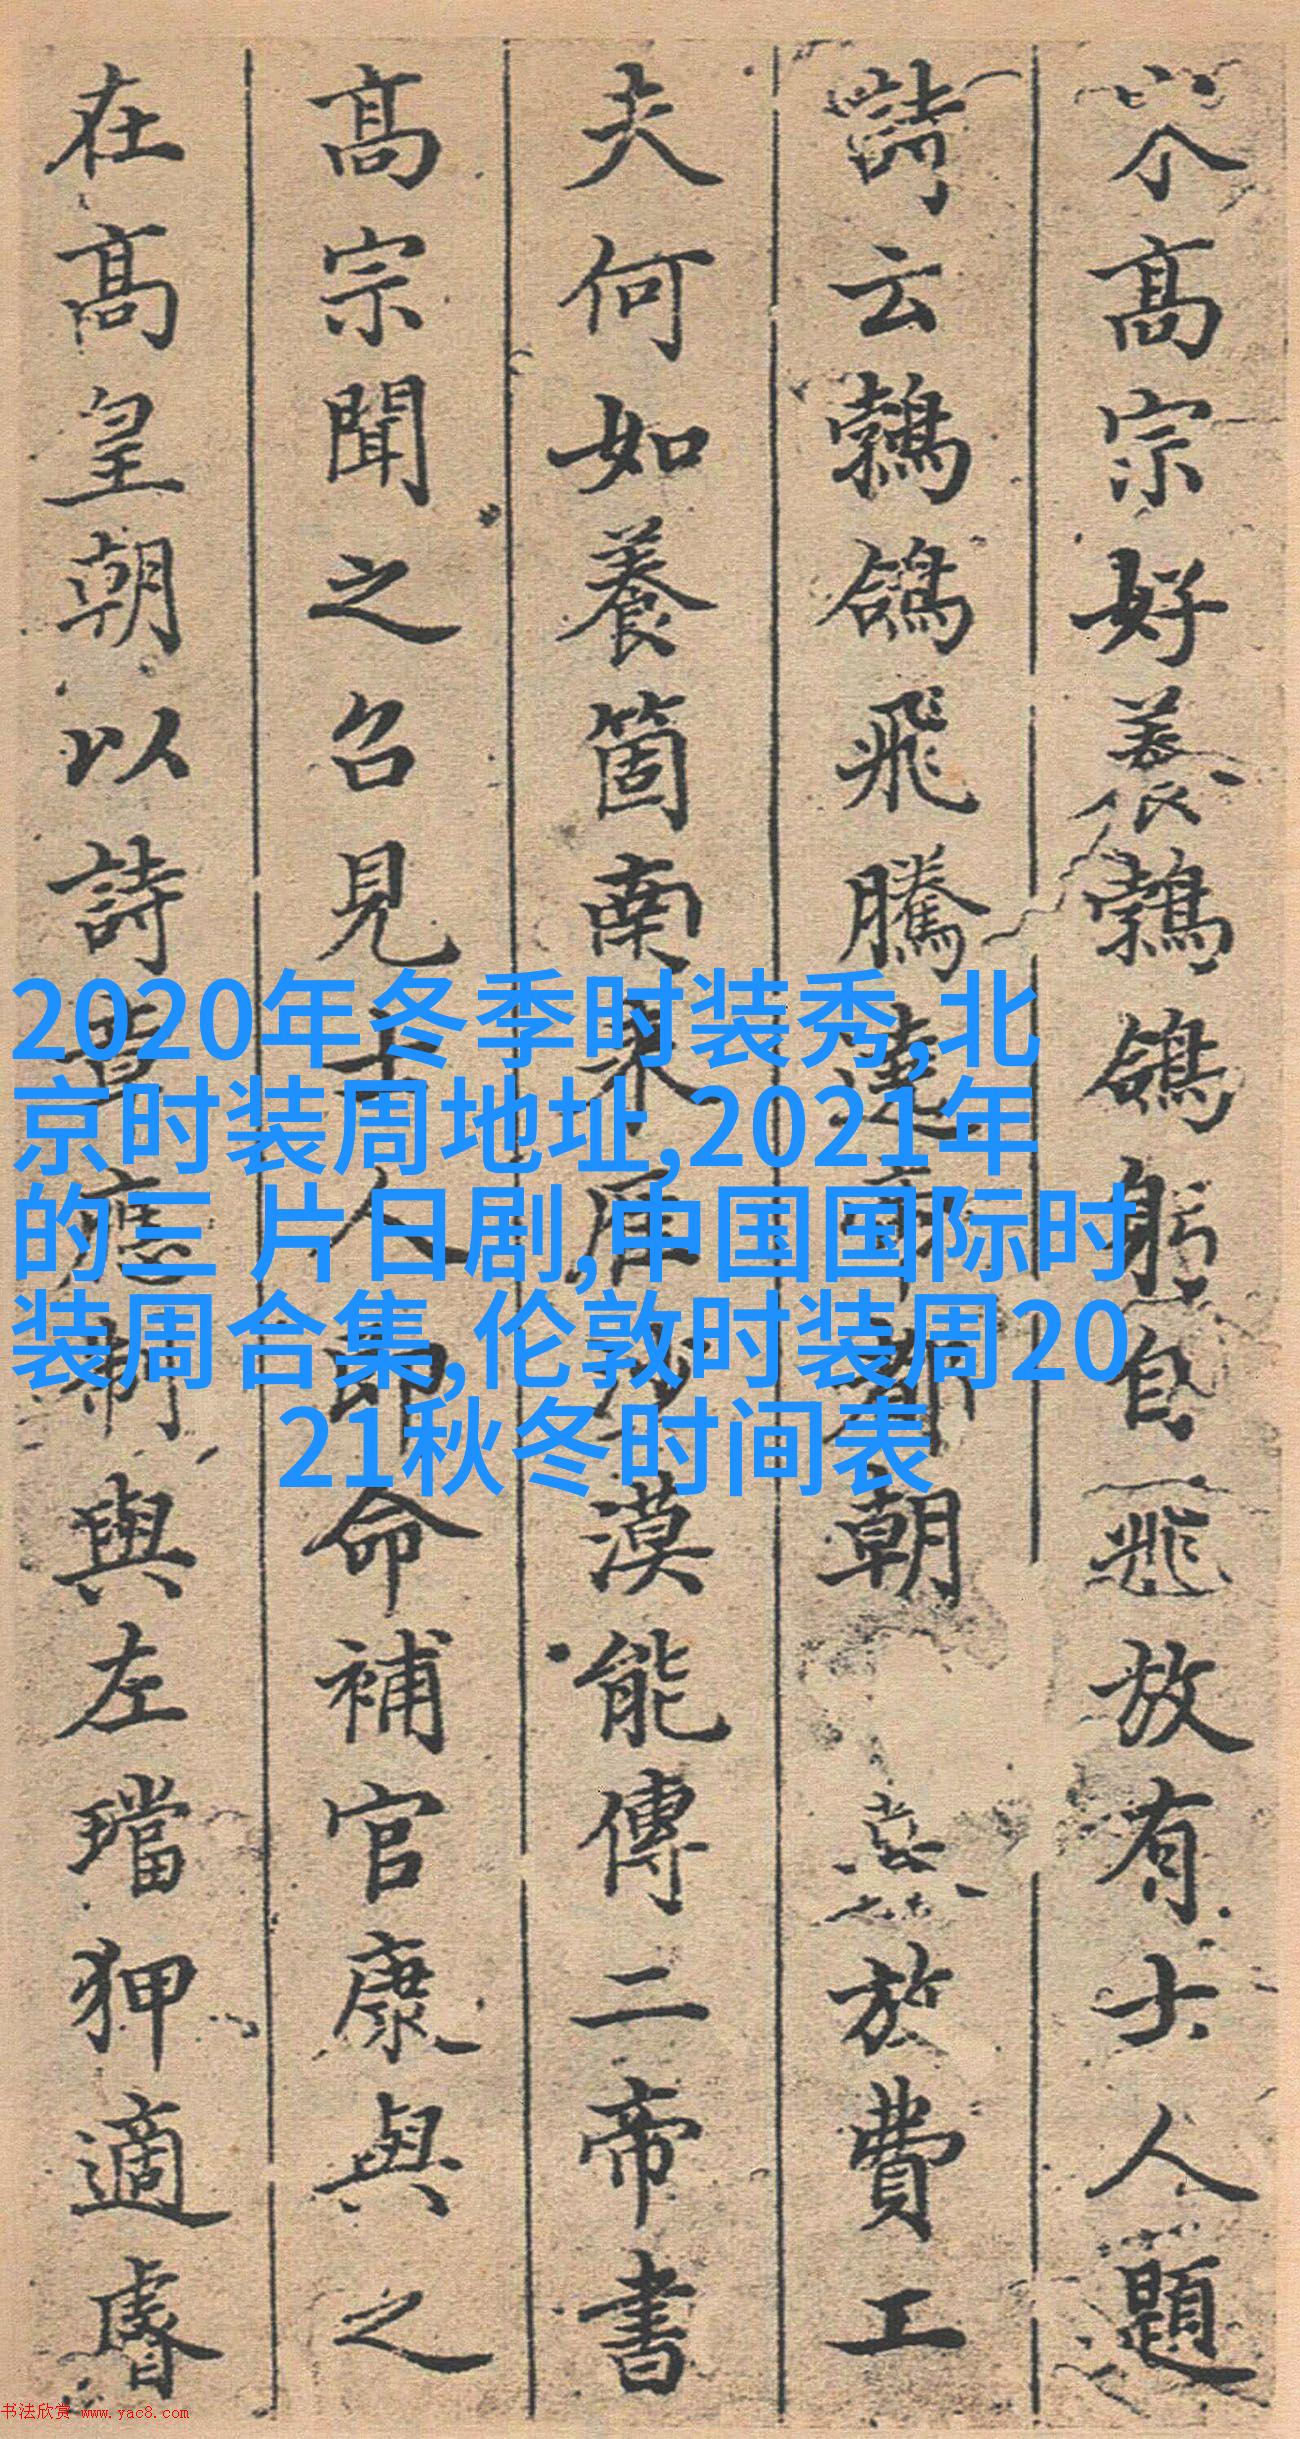 高宗好養鵓鴿躬自飛放有士人題
詩云鵓鴿飛騰遶帝都朝放費工
夫何如養箇南來沙漠能傳二帝書
高宗聞之召見士人即命補官康與之
在高皇朝以詩章應制與左璫狎適睿
2020年冬季时装秀,北
京时装周地址,2021年
的三 片日剧,中国国际时
装周合集,伦敦时装周20
21秋冬时间表
书法欣赏 www.yac8.com